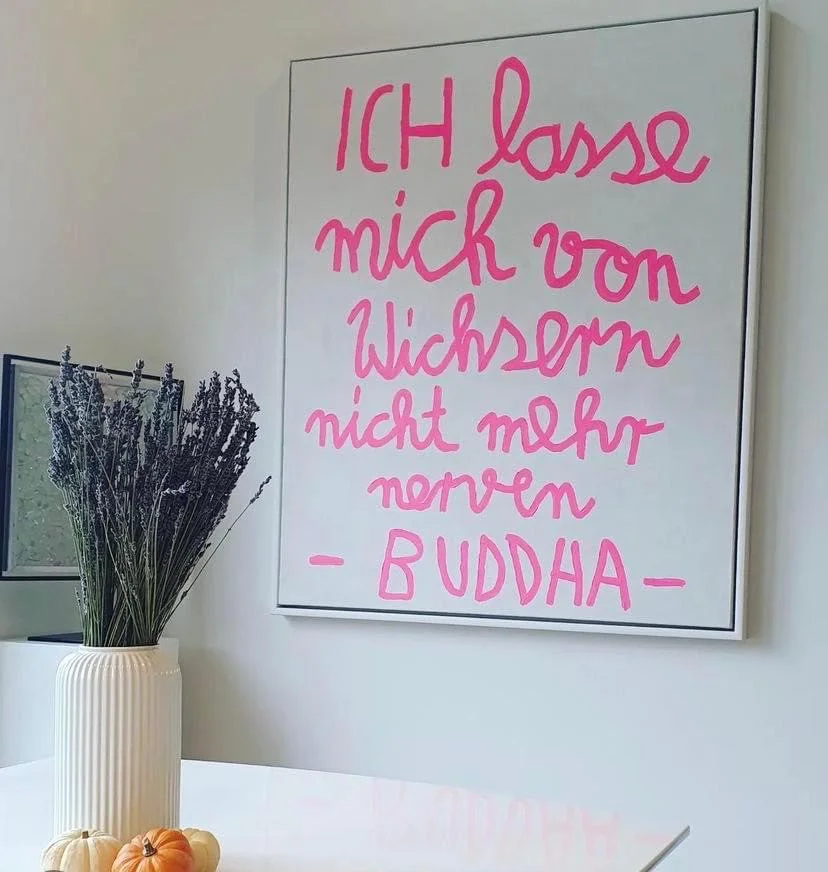 ICH lasse
mich von
Wichsern
nicht mehr
nerven
- BUDDHA -